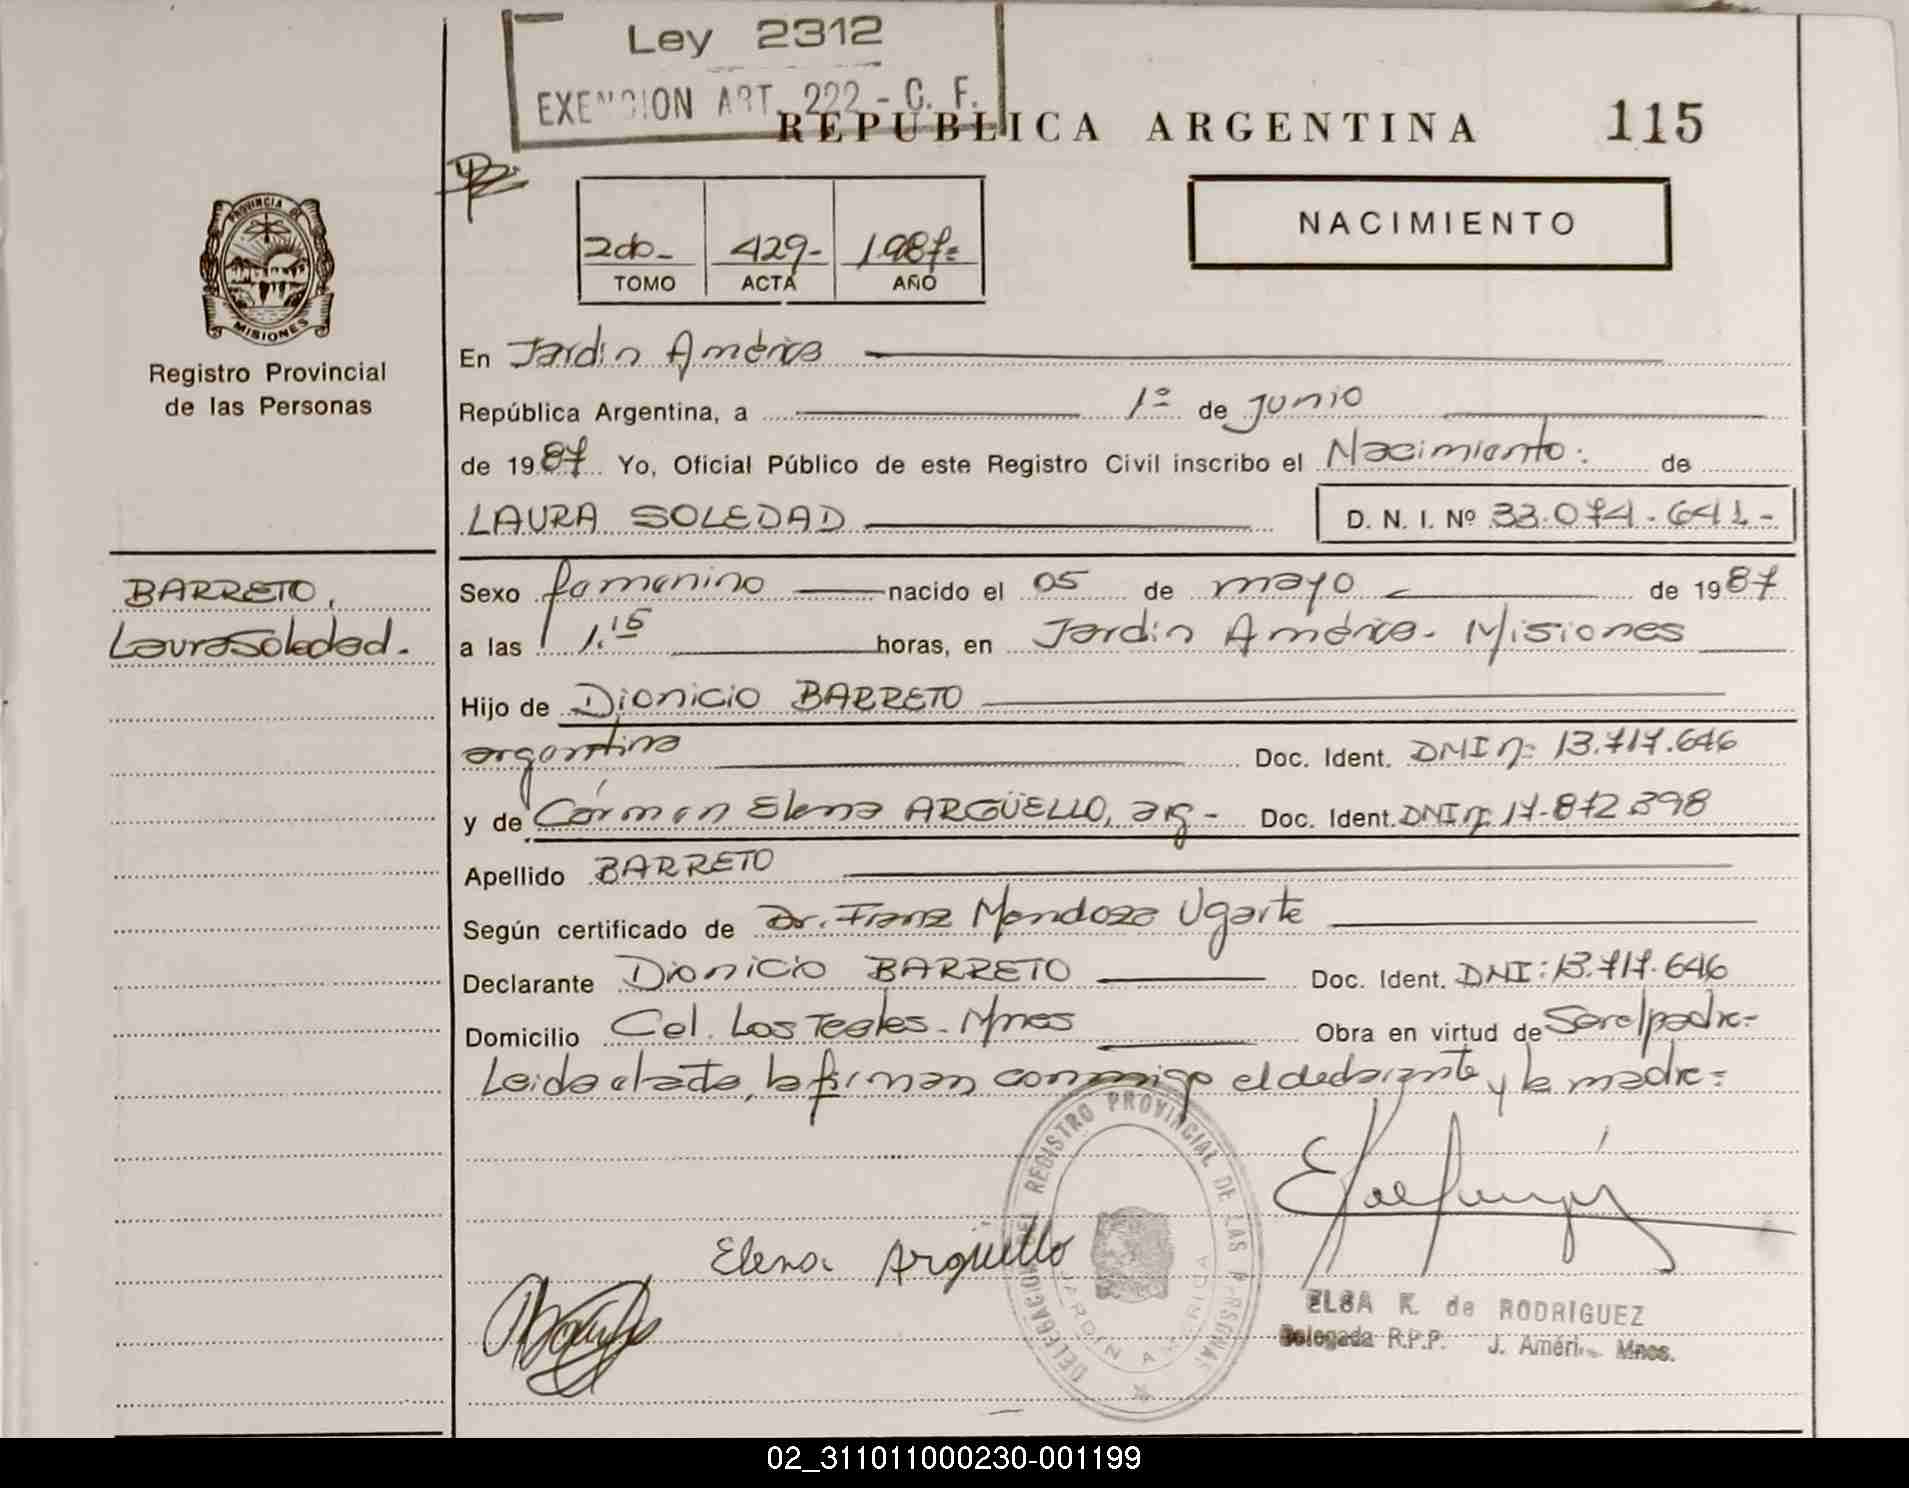 Ley 2312
EXENCION ART. 222 - C. F.
REPUBLICA ARGENTINA 115
NACIMIENTO
2do- 429- 1987=
TOMO ACTA AÑO
PROVINCIA DE
MISIONES
Registro Provincial
de las Personas
En Jardín América
República Argentina, a 1º de junio
de 1987 Yo, Oficial Público de este Registro Civil inscribo el Nacimiento: de
LAURA SOLEDAD D. N. I. Nº 33.074.641-
BARRETO,
Laura Soledad.
Sexo femenino nacido el 05 de mayo de 1987
a las 1.15 horas, en Jardín América- Misiones
Hijo de Dionicio BARRETO
argentina Doc. Ident. DNI nº 13.717.646
y de Cármen Elena ARGÜELLO, arg- Doc. Ident. DNI nº 17.872.398
Apellido BARRETO
Según certificado de Dr. Franz Mendoza Ugarte
Declarante Dionicio BARRETO Doc. Ident. DNI: 13.717.646
Domicilio Col. Los Teales- Mnes Obra en virtud de Ser el padre-
Leida el acta, la firman conmigo el declarante y la madre=
DELEGACION DEL REGISTRO PROVINCIAL DE LAS PERSONAS
JARDIN AMERICA
Elena Argüello
ELSA K. de RODRIGUEZ
Delegada R.P.P. J. Améri Mnes.
02_311011000230-001199